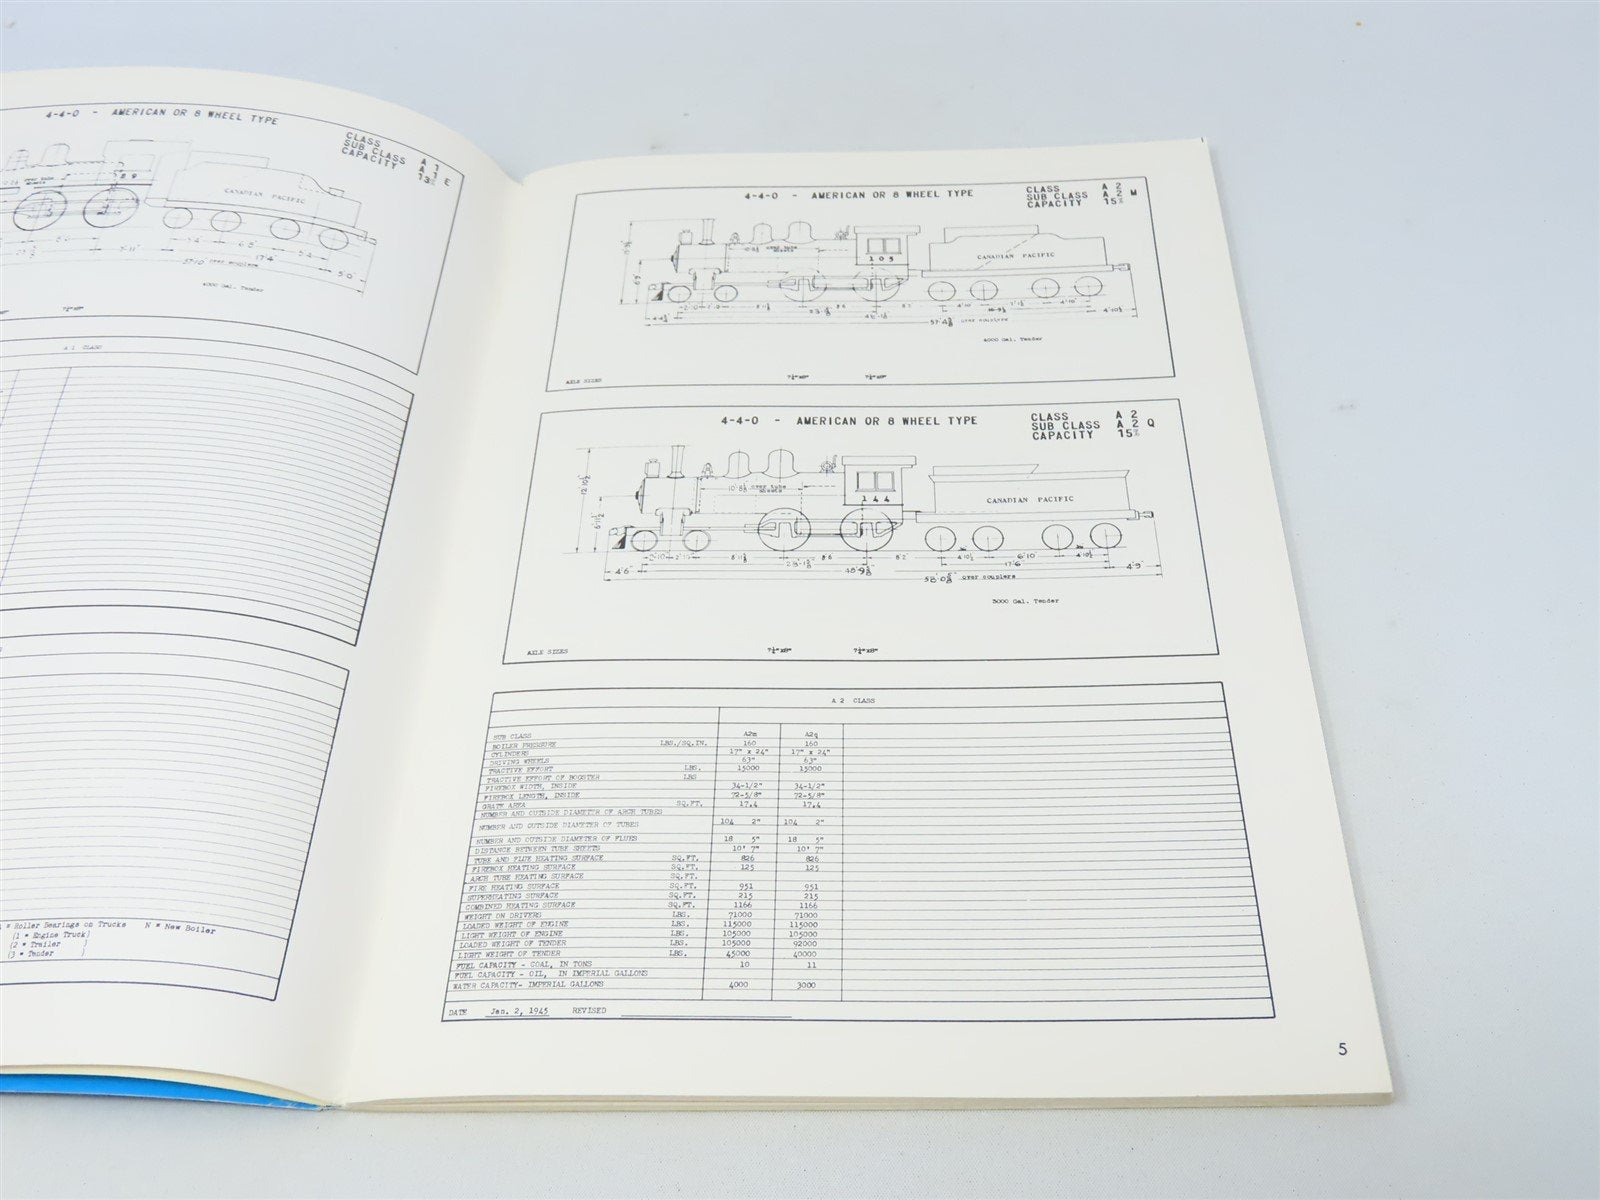 4-4-0 - AMERICAN OR 8 WHEEL TYPE
CLASS A 1
SUB CLASS A 1 E
CAPACITY 13%
89
CANADIAN PACIFIC
17'4"
5'0"
57'10" over couplers
4000 Gal. Tender
A 1 CLASS
= Roller Bearings on Trucks N = New Boiler
(1 = Engine Truck)
(2 = Trailer )
(3 = Tender )
4-4-0 - AMERICAN OR 8 WHEEL TYPE
CLASS A 2
SUB CLASS A 2 M
CAPACITY 15%
over tube
sheets
105
CANADIAN PACIFIC
over couplers
4000 Gal. Tender
AXLE SIZES 7½"x8" 7½"x8"
4-4-0 - AMERICAN OR 8 WHEEL TYPE
CLASS A 2
SUB CLASS A 2 Q
CAPACITY 15%
over tube
sheets
144
CANADIAN PACIFIC
6'10"
4'6" 17'6" 4'9"
over couplers
3000 Gal. Tender
AXLE SIZES 7½"x8" 7½"x8"
A 2 CLASS
SUB CLASS A2m A2q
BOILER PRESSURE LBS./SQ.IN. 160 160
CYLINDERS 17" x 24" 17" x 24"
DRIVING WHEELS 63" 63"
TRACTIVE EFFORT LBS. 15000 15000
TRACTIVE EFFORT OF BOOSTER LBS
FIREBOX WIDTH, INSIDE 34-1/2" 34-1/2"
FIREBOX LENGTH, INSIDE 72-5/8" 72-5/8"
GRATE AREA SQ.FT. 17.4 17.4
NUMBER AND OUTSIDE DIAMETER OF ARCH TUBES
NUMBER AND OUTSIDE DIAMETER OF TUBES 104 2" 104 2"
NUMBER AND OUTSIDE DIAMETER OF FLUES 18 5" 18 5"
DISTANCE BETWEEN TUBE SHEETS 10' 7" 10' 7"
TUBE AND FLUE HEATING SURFACE SQ.FT. 826 826
FIREBOX HEATING SURFACE SQ.FT. 125 125
ARCH TUBE HEATING SURFACE SQ.FT.
FIRE HEATING SURFACE SQ.FT. 951 951
SUPERHEATING SURFACE SQ.FT. 215 215
COMBINED HEATING SURFACE SQ.FT. 1166 1166
WEIGHT ON DRIVERS LBS. 71000 71000
LOADED WEIGHT OF ENGINE LBS. 115000 115000
LIGHT WEIGHT OF ENGINE LBS. 105000 105000
LOADED WEIGHT OF TENDER LBS. 105000 92000
LIGHT WEIGHT OF TENDER LBS. 45000 40000
FUEL CAPACITY - COAL, IN TONS 10 11
FUEL CAPACITY - OIL, IN IMPERIAL GALLONS
WATER CAPACITY- IMPERIAL GALLONS 4000 3000
DATE Jan. 2, 1945 REVISED
5